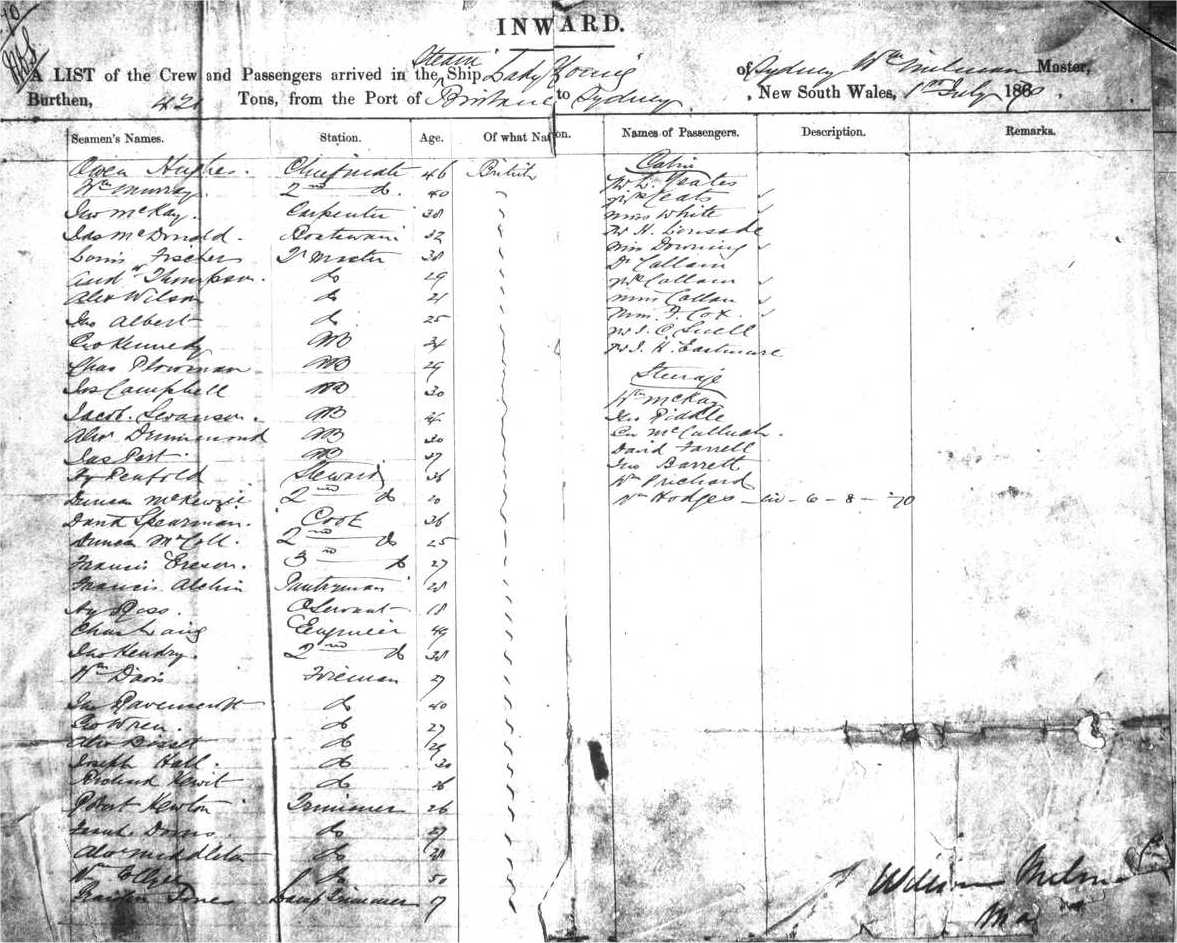 INWARD.
A LIST of the Crew and Passengers arrived in the Steam Ship Lady Young of Sydney Wm Milman Master,
Burthen, 421 Tons, from the Port of Brisbane to Sydney , New South Wales, 1st July 1870
Seamen's Names. Station. Age. Of what Nation. Names of Passengers. Description. Remarks.
Owen Hughes. Chief mate 46 British
Wm Murray. 2nd do. 40
Jno McKay. Carpenter 38
Jas McDonald. Boatswain 32
Louis Fischer Qr Master 38
Andw Thompson. do 29
Alex Wilson do 21
Jno Albert do 25
Geo Kennedy AB 34
Chas Plowman AB 29
Jas Campbell AB 30
Jacob Swanson. AB
Alexr Drummond AB 30
Jas Part. AB 37
Hy Penfold Steward 36
Duncan McKenzie 2nd do 20
David Spearman. Cook 36
Duncan McColl. 2nd do 25
Francis 3rd do 27
Francis Alchin Pantryman 28
Hy Ross. Servant 18
Chas Laing Engineer 49
Jno Hendry. 2nd do 38
Wm Davis Fireman 27
Jno Ravenscroft do 40
Geo Wren. do 27
Alex do 29
Joseph Hall. do 30
Richard Hewit do 36
Robert Newton Trimmer 26
do 27
Alex Middleton do 28
Wm do 50
Jones Lamp Trimmer 17
Cabin
Mr W. Yeates
Mrs Yeats
Miss White
Mr H. Lonsdale
Miss Downing
Dr Callam
Mrs Callam
Miss Callam
Miss J. Cox
Mr J. C. Snell
Mr J. H. Eastmure
Steerage
Wm McKay
Jno Riddle
McCullugh.
David Farrell
Jno Barrett
Wm Prichard
Wm Hodges - 6 - 8 - 70
William Milman